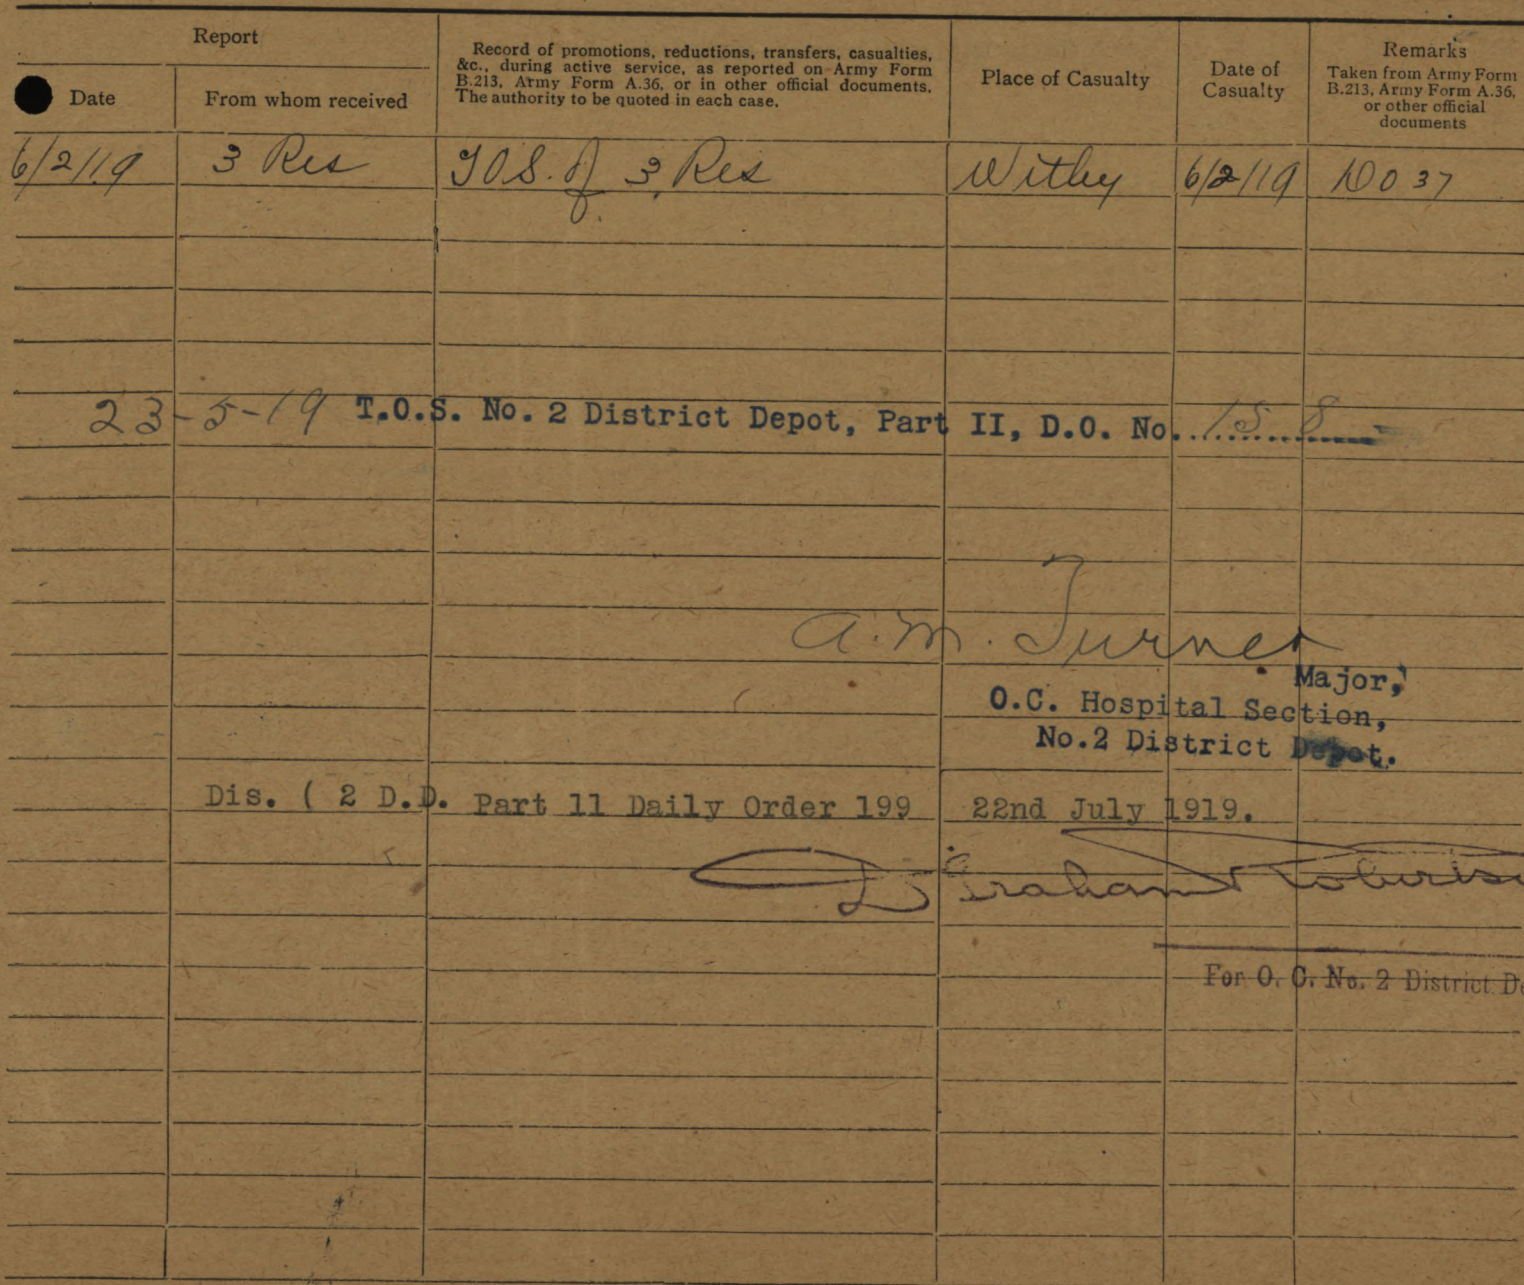 Report
Date
From whom received
Record of promotions, reductions, transfers, casualties,
&c., during active service, as reported on Army Form
B.213, Army Form A.36, or in other official documents.
The authority to be quoted in each case.
Place of Casualty
Date of
Casualty
Remarks
Taken from Army Form
B.213, Army Form A.36,
or other official
documents
6/2/19 3 Res TOS. of 3 Res Witley 6/2/19 DO 37
23-5-19 T.O.S. No. 2 District Depot, Part II, D.O. No. 158
A. M. Turner
Major,
O.C. Hospital Section,
No.2 District Depot.
Dis. ( 2 D.D. Part 11 Daily Order 199 22nd July 1919.
Graham
For O. C. No. 2 District De